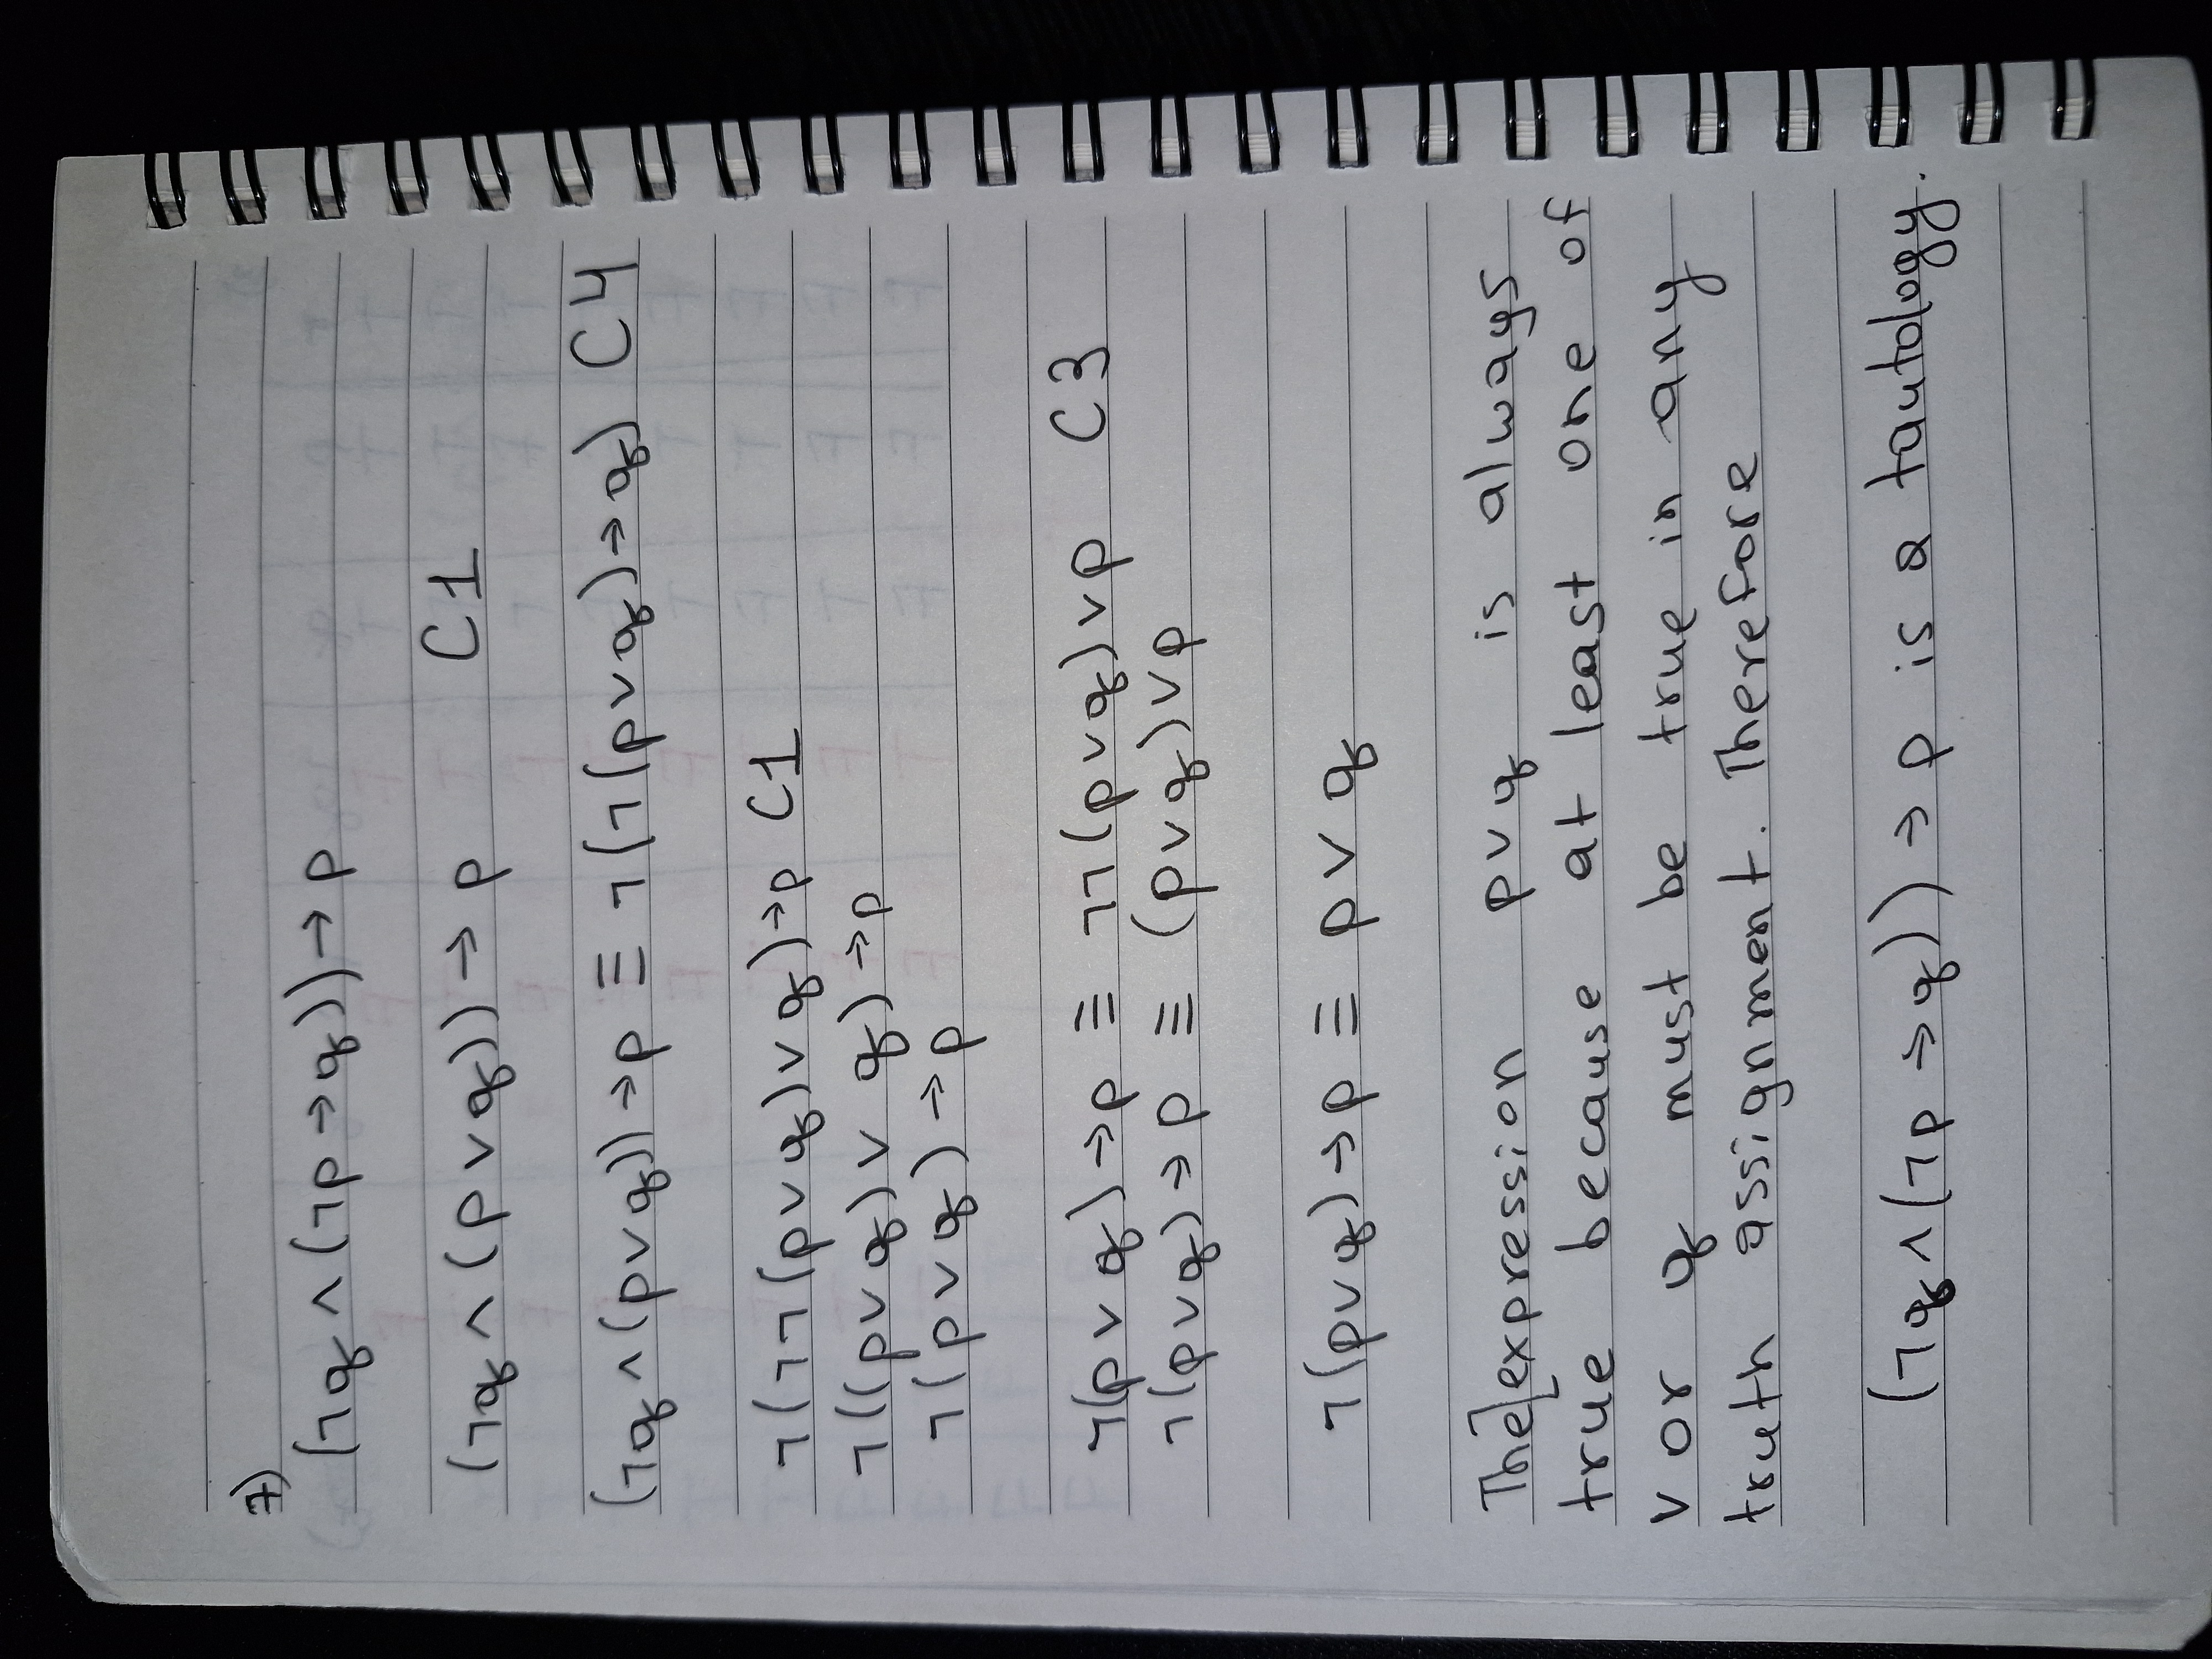 7)
(¬q ∧ (¬p → q)) → p
(¬q ∧ (p ∨ q)) → p C1
(¬q ∧ (p ∨ q)) → p ≡ ¬(¬(p ∨ q) → q) C4
¬(¬¬(p ∨ q) ∨ q) → p C1
¬((p ∨ q) ∨ q) → p
¬(p ∨ q) → p
¬(p ∨ q) → p ≡ ¬¬(p ∨ q) ∨ p C3
¬(p ∨ q) → p ≡ (p ∨ q) ∨ p
¬(p ∨ q) → p ≡ p ∨ q
The expression p ∨ q is always
true because at least one of
v or q must be true in any
truth assignment. Therefore
(¬q ∧ (¬p → q)) → p is a tautology.